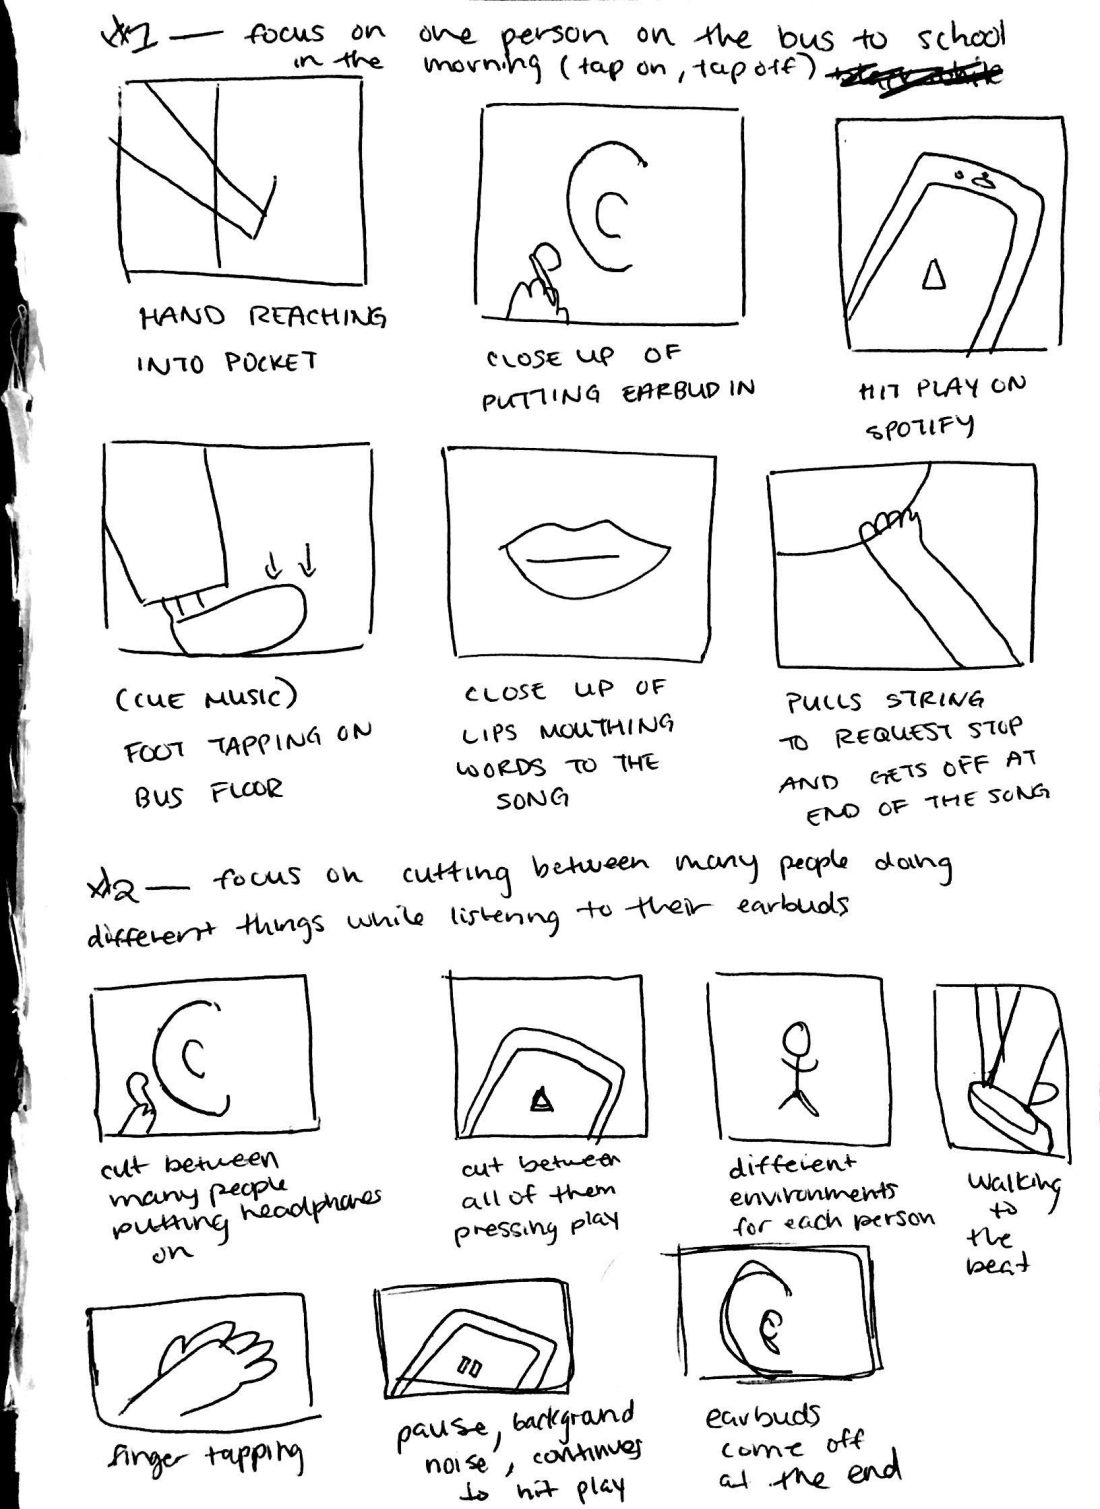 #1 — focus on one person on the bus to school
in the morning (tap on, tap off)
HAND REACHING
INTO POCKET
CLOSE UP OF
PUTTING EARBUD IN
HIT PLAY ON
SPOTIFY
(CUE MUSIC)
FOOT TAPPING ON
BUS FLOOR
CLOSE UP OF
LIPS MOUTHING
WORDS TO THE
SONG
PULLS STRING
TO REQUEST STOP
AND GETS OFF AT
END OF THE SONG
#2 — focus on cutting between many people doing
different things while listening to their earbuds
cut between
many people
putting headphones
on
cut between
all of them
pressing play
different
environments
for each person
walking
to
the
beat
finger tapping
pause, background
noise, continues
to hit play
earbuds
come off
at the end